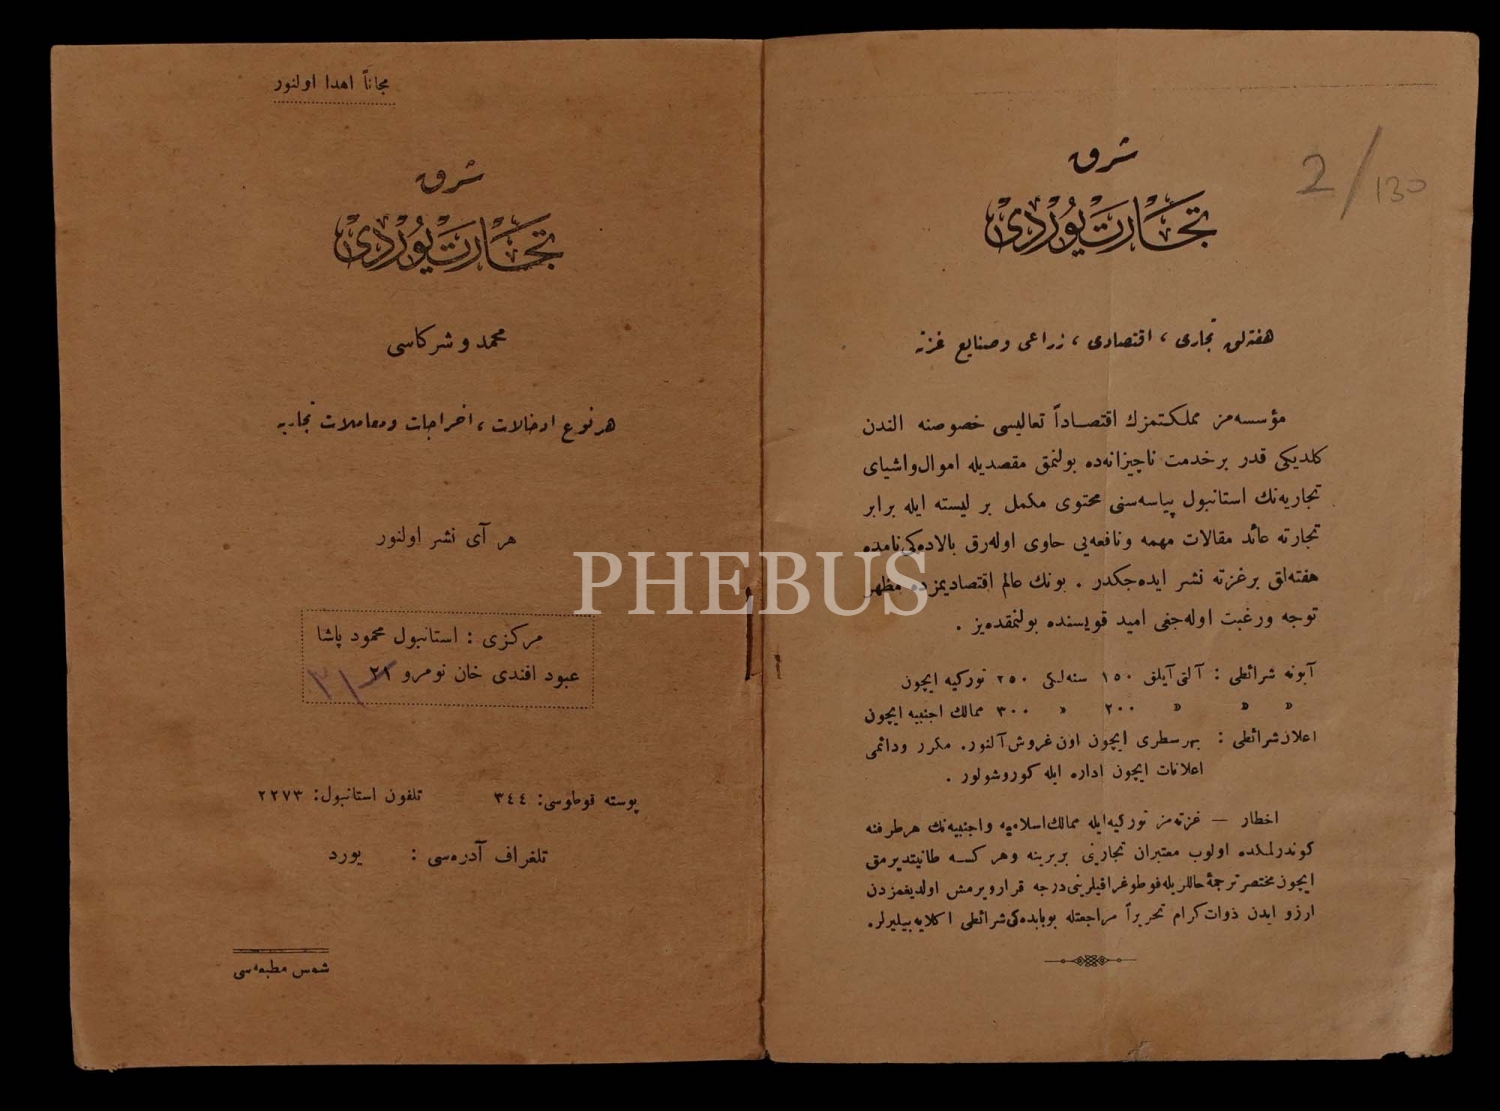 مجاناً اهدا اولنور
شرق
تجارت يوردى
محمد و شركاسى
هر نوع ادخالات ، اخراجات و معاملات تجاريه
هر آى نشر اولنور
مركزى : استانبول محمود پاشا
عبود افندى خان نومرو ٢١
٣١
پوسته قوطوسى: ٣٤٤ تلفون استانبول: ٢٢٧٣
تلغراف آدره‌سى : يورد
شمس مطبعه‌سى
2/130
شرق
تجارت يوردى
هفته‌لق تجارى ، اقتصادى ، زراعى و صنايع غزته
مؤسسه‌مز مملكتمزك اقتصاداً تعاليسى خصوصنه الندن
كلديكى قدر بر خدمت ناچيزانه‌ده بولنمق مقصديله اموال واشياى
تجاريه‌نك استانبول پياسه‌سنى محتوى مكمل بر ليسته ايله برابر
تجارته عائد مقالات مهمه و نافعه‌يى حاوى اوله‌رق بالاده‌كى نامده
هفته‌لق بر غزته نشر ايده‌جكدر . بونك عالم اقتصاديمزده مظهر
توجه و رغبت اوله‌جغى اميد قويسنده بولنمقده‌يز .
آبونه شرائطى : آلتى آيلق ١٥٠ سنه‌لكى ٢٥٠ توركيه ايچون
« « « ٢٠٠ « ٣٠٠ ممالك اجنبيه ايچون
اعلان شرائطى : بهر سطرى ايچون اون غروش آلنور. مكرر و دائمى
اعلانات ايچون اداره ايله كوروشولور .
اخطار — غزته‌مز توركيه ايله ممالك اسلاميه و اجنبيه‌نك هر طرفنه
كوندرلمكده اولوب معتبران تجارينى بربرينه و هر كسه طانيتديرمق
ايچون مختصر ترجمۀ حاللريله فوطوغرافيلرينى درجه قرار ويرمش اولديغمزدن
ارزو ايدن ذوات كرام تحريراً مراجعتله بوبابده‌كى شرائطى اكلايه بيليرلر.
PHEBUS